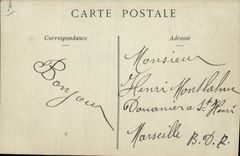 CARTE POSTALE
Correspondance
Adresse
Bonjour
Monsieur
Henri Montlahuc
Douanier a St Henri
Marseille B. D. R.